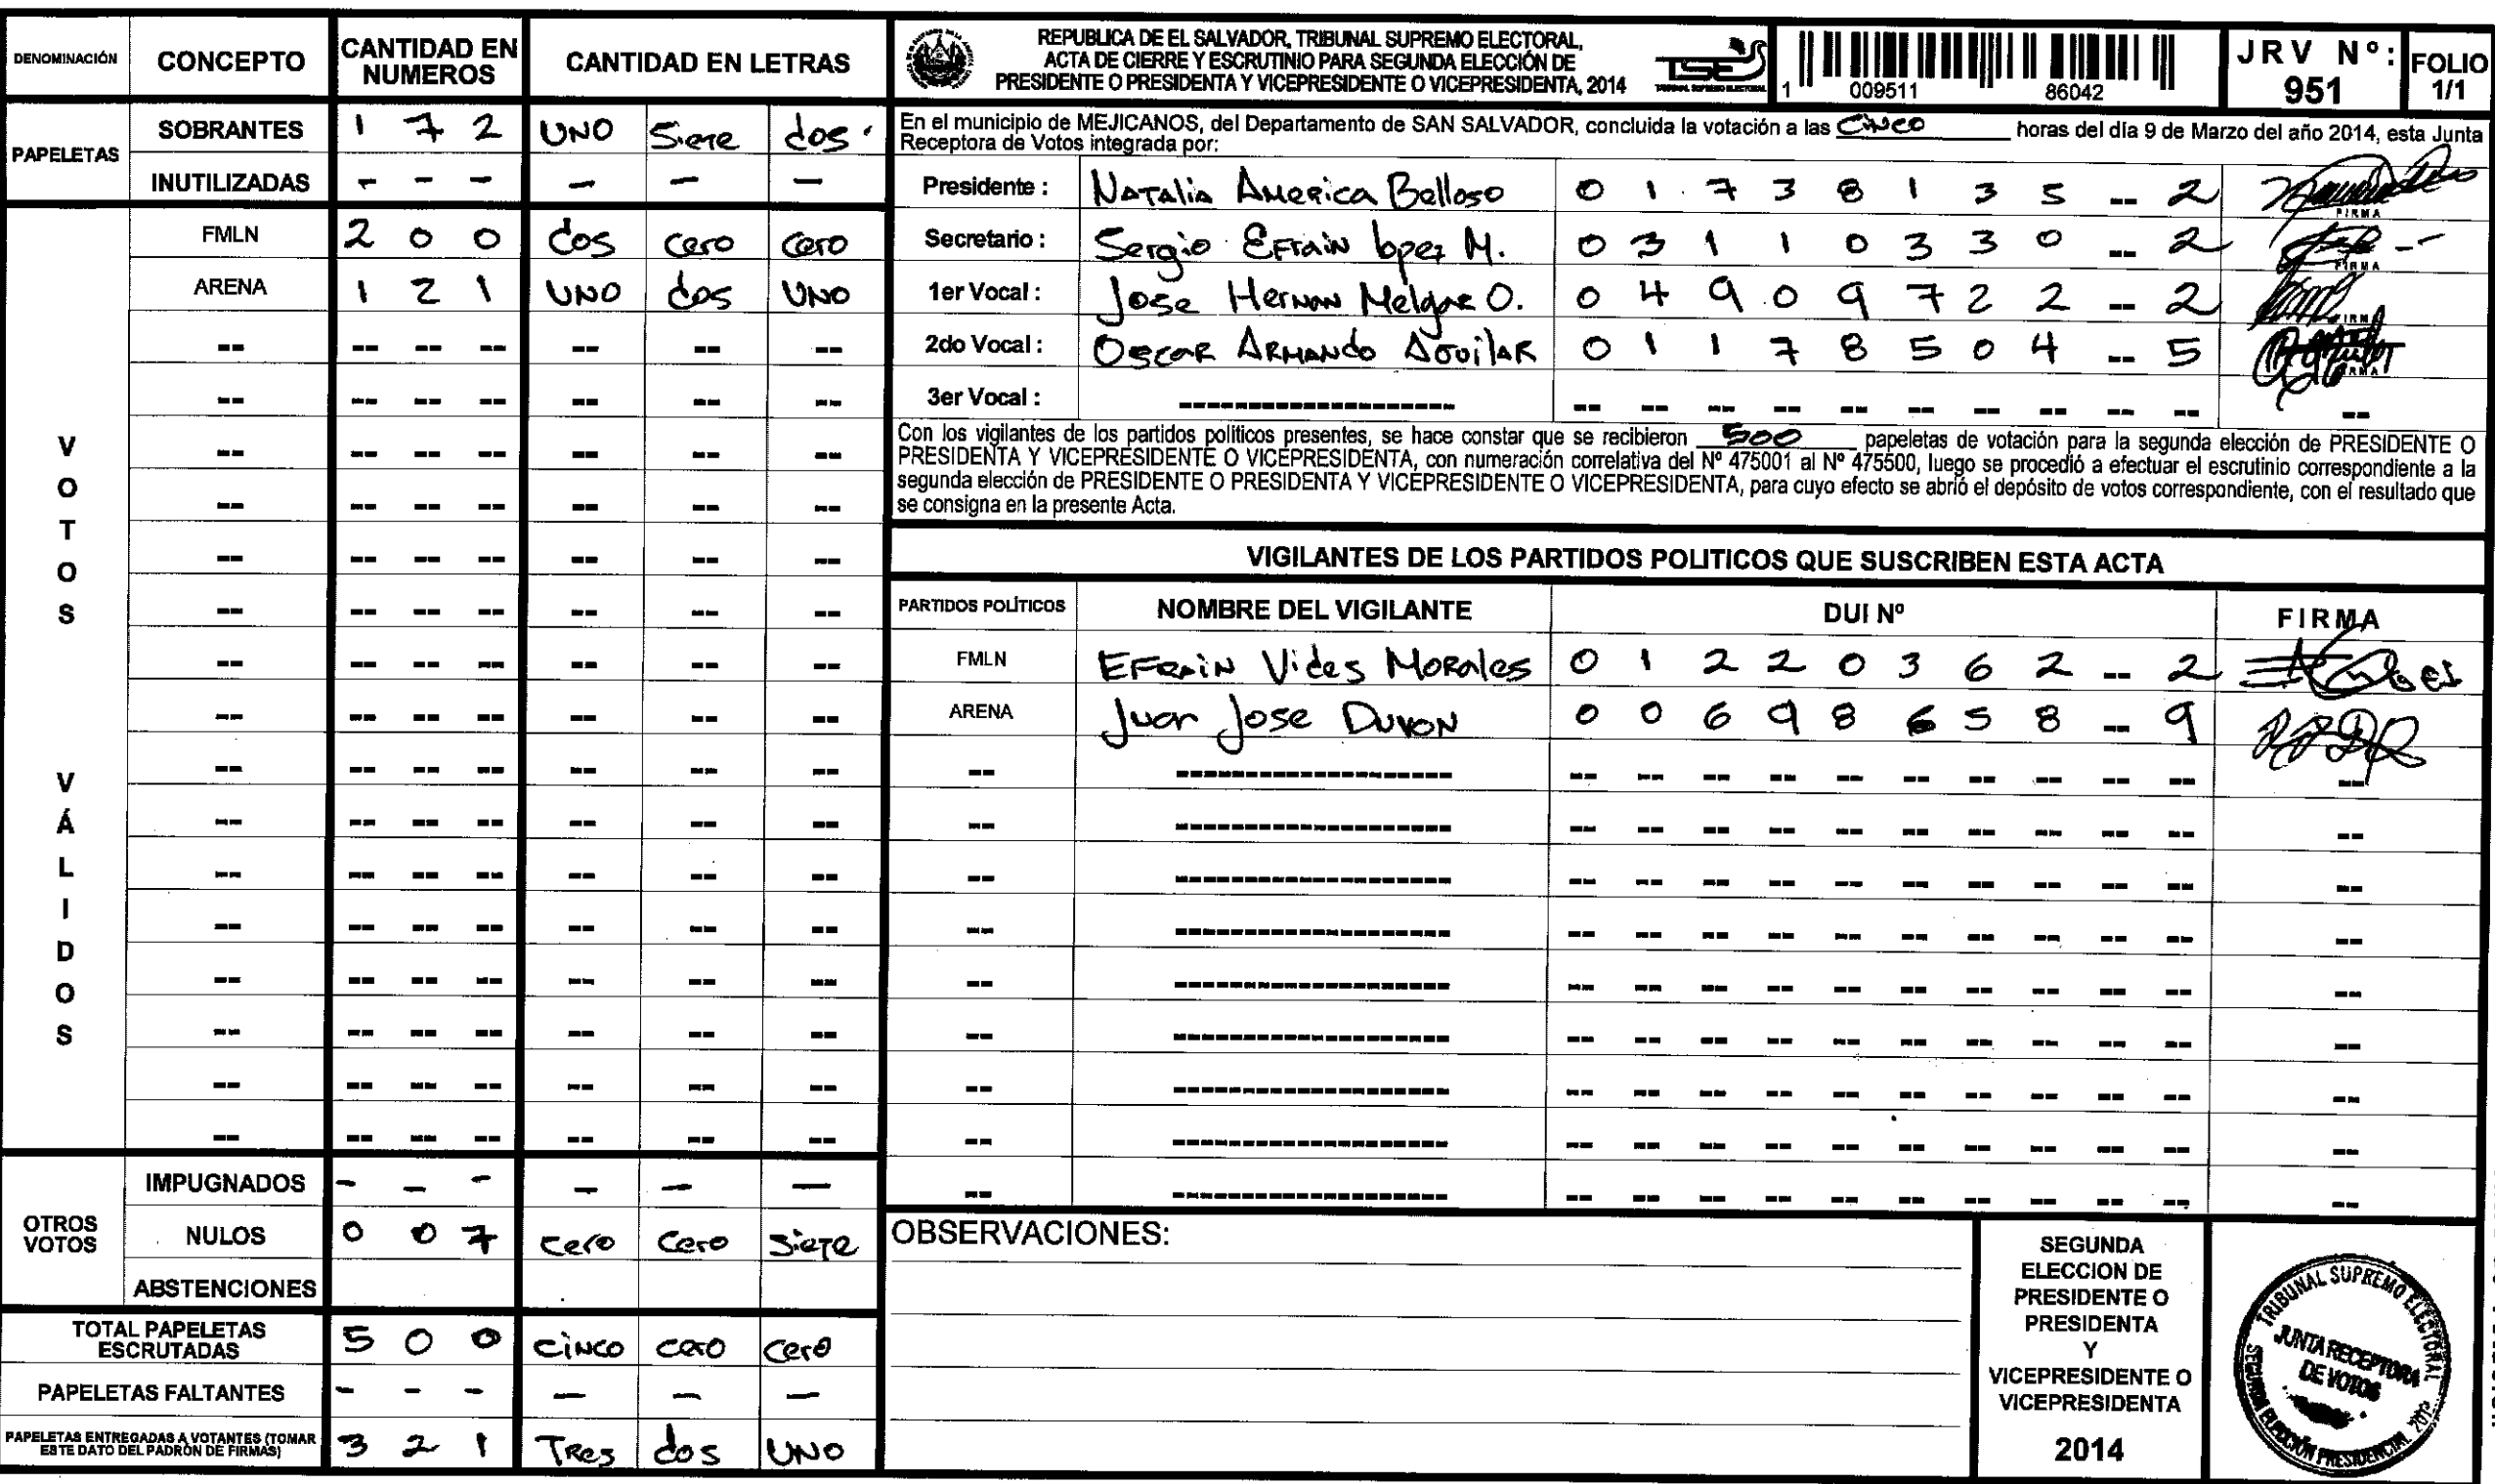 DENOMINACIÓN CONCEPTO CANTIDAD EN NUMEROS CANTIDAD EN LETRAS
PAPELETAS
SOBRANTES 1 7 2 UNO Siete dos
INUTILIZADAS - - - - - -
VOTOS VÁLIDOS
FMLN 2 0 0 dos cero cero
ARENA 1 2 1 UNO dos UNO
OTROS VOTOS
IMPUGNADOS - - - - - -
NULOS 0 0 7 cero cero siete
ABSTENCIONES
TOTAL PAPELETAS ESCRUTADAS 5 0 0 cinco cero cero
PAPELETAS FALTANTES - - - - - -
PAPELETAS ENTREGADAS A VOTANTES (TOMAR ESTE DATO DEL PADRÓN DE FIRMAS) 3 2 1 Tres dos UNO
REPUBLICA DE EL SALVADOR, TRIBUNAL SUPREMO ELECTORAL,
ACTA DE CIERRE Y ESCRUTINIO PARA SEGUNDA ELECCIÓN DE
PRESIDENTE O PRESIDENTA Y VICEPRESIDENTE O VICEPRESIDENTA, 2014
TSE
TRIBUNAL SUPREMO ELECTORAL
1 009511 86042
JRV Nº: 951
FOLIO 1/1
En el municipio de MEJICANOS, del Departamento de SAN SALVADOR, concluida la votación a las Cinco horas del día 9 de Marzo del año 2014, esta Junta
Receptora de Votos integrada por:
Presidente : Natalia America Belloso 0 1 7 3 8 1 3 5 -- 2 FIRMA
Secretario : Sergio Efrain Lopez M. 0 3 1 1 0 3 3 0 -- 2 FIRMA
1er Vocal : Jose Hernan Melgar O. 0 4 9 0 9 7 2 2 -- 2 FIRMA
2do Vocal : Oscar Armando Aguilar 0 1 1 7 8 5 0 4 -- 5 FIRMA
3er Vocal :
Con los vigilantes de los partidos políticos presentes, se hace constar que se recibieron 500 papeletas de votación para la segunda elección de PRESIDENTE O
PRESIDENTA Y VICEPRESIDENTE O VICEPRESIDENTA, con numeración correlativa del Nº 475001 al Nº 475500, luego se procedió a efectuar el escrutinio correspondiente a la
segunda elección de PRESIDENTE O PRESIDENTA Y VICEPRESIDENTE O VICEPRESIDENTA, para cuyo efecto se abrió el depósito de votos correspondiente, con el resultado que
se consigna en la presente Acta.
VIGILANTES DE LOS PARTIDOS POLITICOS QUE SUSCRIBEN ESTA ACTA
PARTIDOS POLÍTICOS NOMBRE DEL VIGILANTE DUI Nº FIRMA
FMLN Efrain Vides Morales 0 1 2 2 0 3 6 2 -- 2
ARENA Juan Jose 0 0 6 9 8 6 5 8 -- 9
OBSERVACIONES:
SEGUNDA
ELECCION DE
PRESIDENTE O
PRESIDENTA
Y
VICEPRESIDENTE O
VICEPRESIDENTA
2014
TRIBUNAL SUPREMO ELECTORAL
JUNTA RECEPTORA
DE VOTOS
SEGUNDA ELECCIÓN PRESIDENCIAL 2014